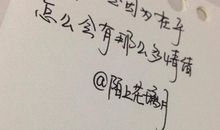 因为在乎
怎么会有那么多情绪
@陌上花满月